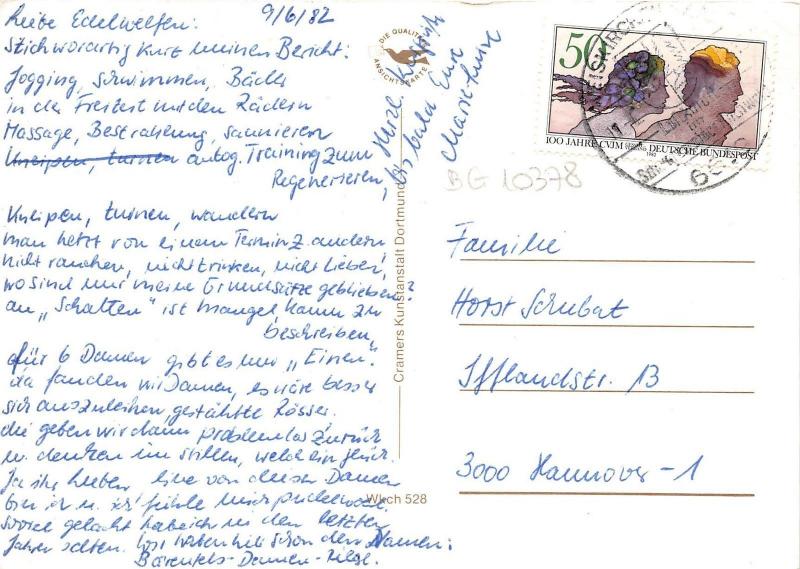 Liebe Edelwelfen: 9/6/82
Stichwortartig kurz meinen Bericht:
Jogging, schwimmen, Bäder
in der Freizeit mit den Rädern
Massage, Bestrahlung, saunieren
Kneipen, turnen autog. Training zum
Regenerieren,
Kneipen, turnen, wandern
man hetzt von einem Termin z. andern,
nicht rauchen, nicht trinken, nicht lieben,
wo sind nur meine Grundsätze geblieben?
an "Schatten" ist mangel, kaum zu
beschreiben,
für 6 Damen gibt es nur "Einen".
da fanden wir Damen, es wäre besser
sich auszuleihen, gestählte Rösser.
die geben wir dann problemlos zurück
u. denken im stillen, welch ein Glück.
Ja ihr lieben eine von diesen Damen
bin ich u. ich fühle mich pudelwohl.
soviel gelacht habe ich in den letzten
Jahren selten. Wir haben schon den Namen:
Bärenfels-Damen-Riege.
Herzl.
bis bald Eure
DIE QUALITÄTS
ANSICHTSKARTE
Cramers Kunstanstalt Dortmund
Wkch 528
50
100 JAHRE CVJM 1982 DEUTSCHE BUNDESPOST
BG 10378
Familie
Horst Schubat
Ifflandstr. 13
3000 Hannover-1